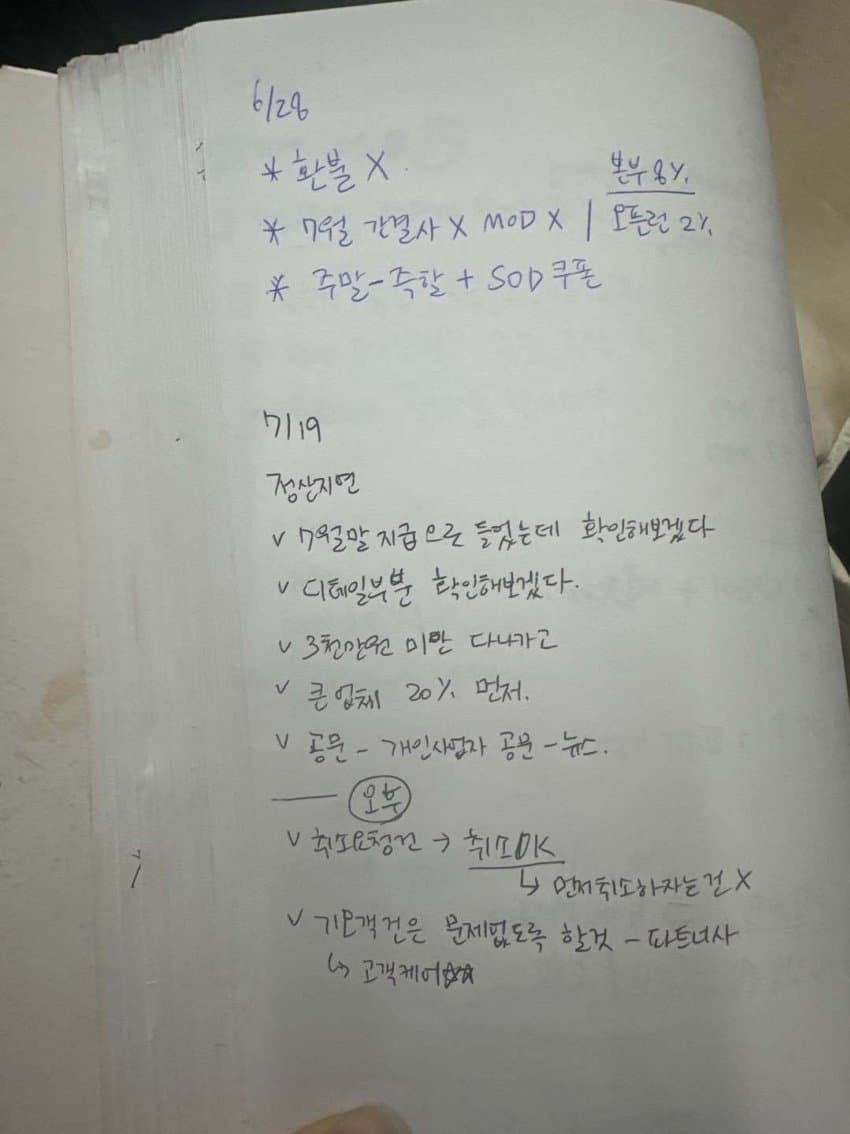 6/28
* 환불 X.
본부 8%
* 7월 간결사 X MOD X | 오픈런 2%
* 주말-즉할 + SOD 쿠폰
7/19
정산지연
v 7월말 지급으로 들었는데 확인해보겠다
v 디테일부분 확인해보겠다.
v 3천만원 미만 다나가고
v 큰업체 20% 먼저.
v 공문 - 개인사업자 공문 - 뉴스.
오후
v 취소요청건 → 취소OK
↳ 먼저취소하자는건 X
v 기모객건은 문제없도록 할것 - 파트너사
↳ 고객케어☆☆